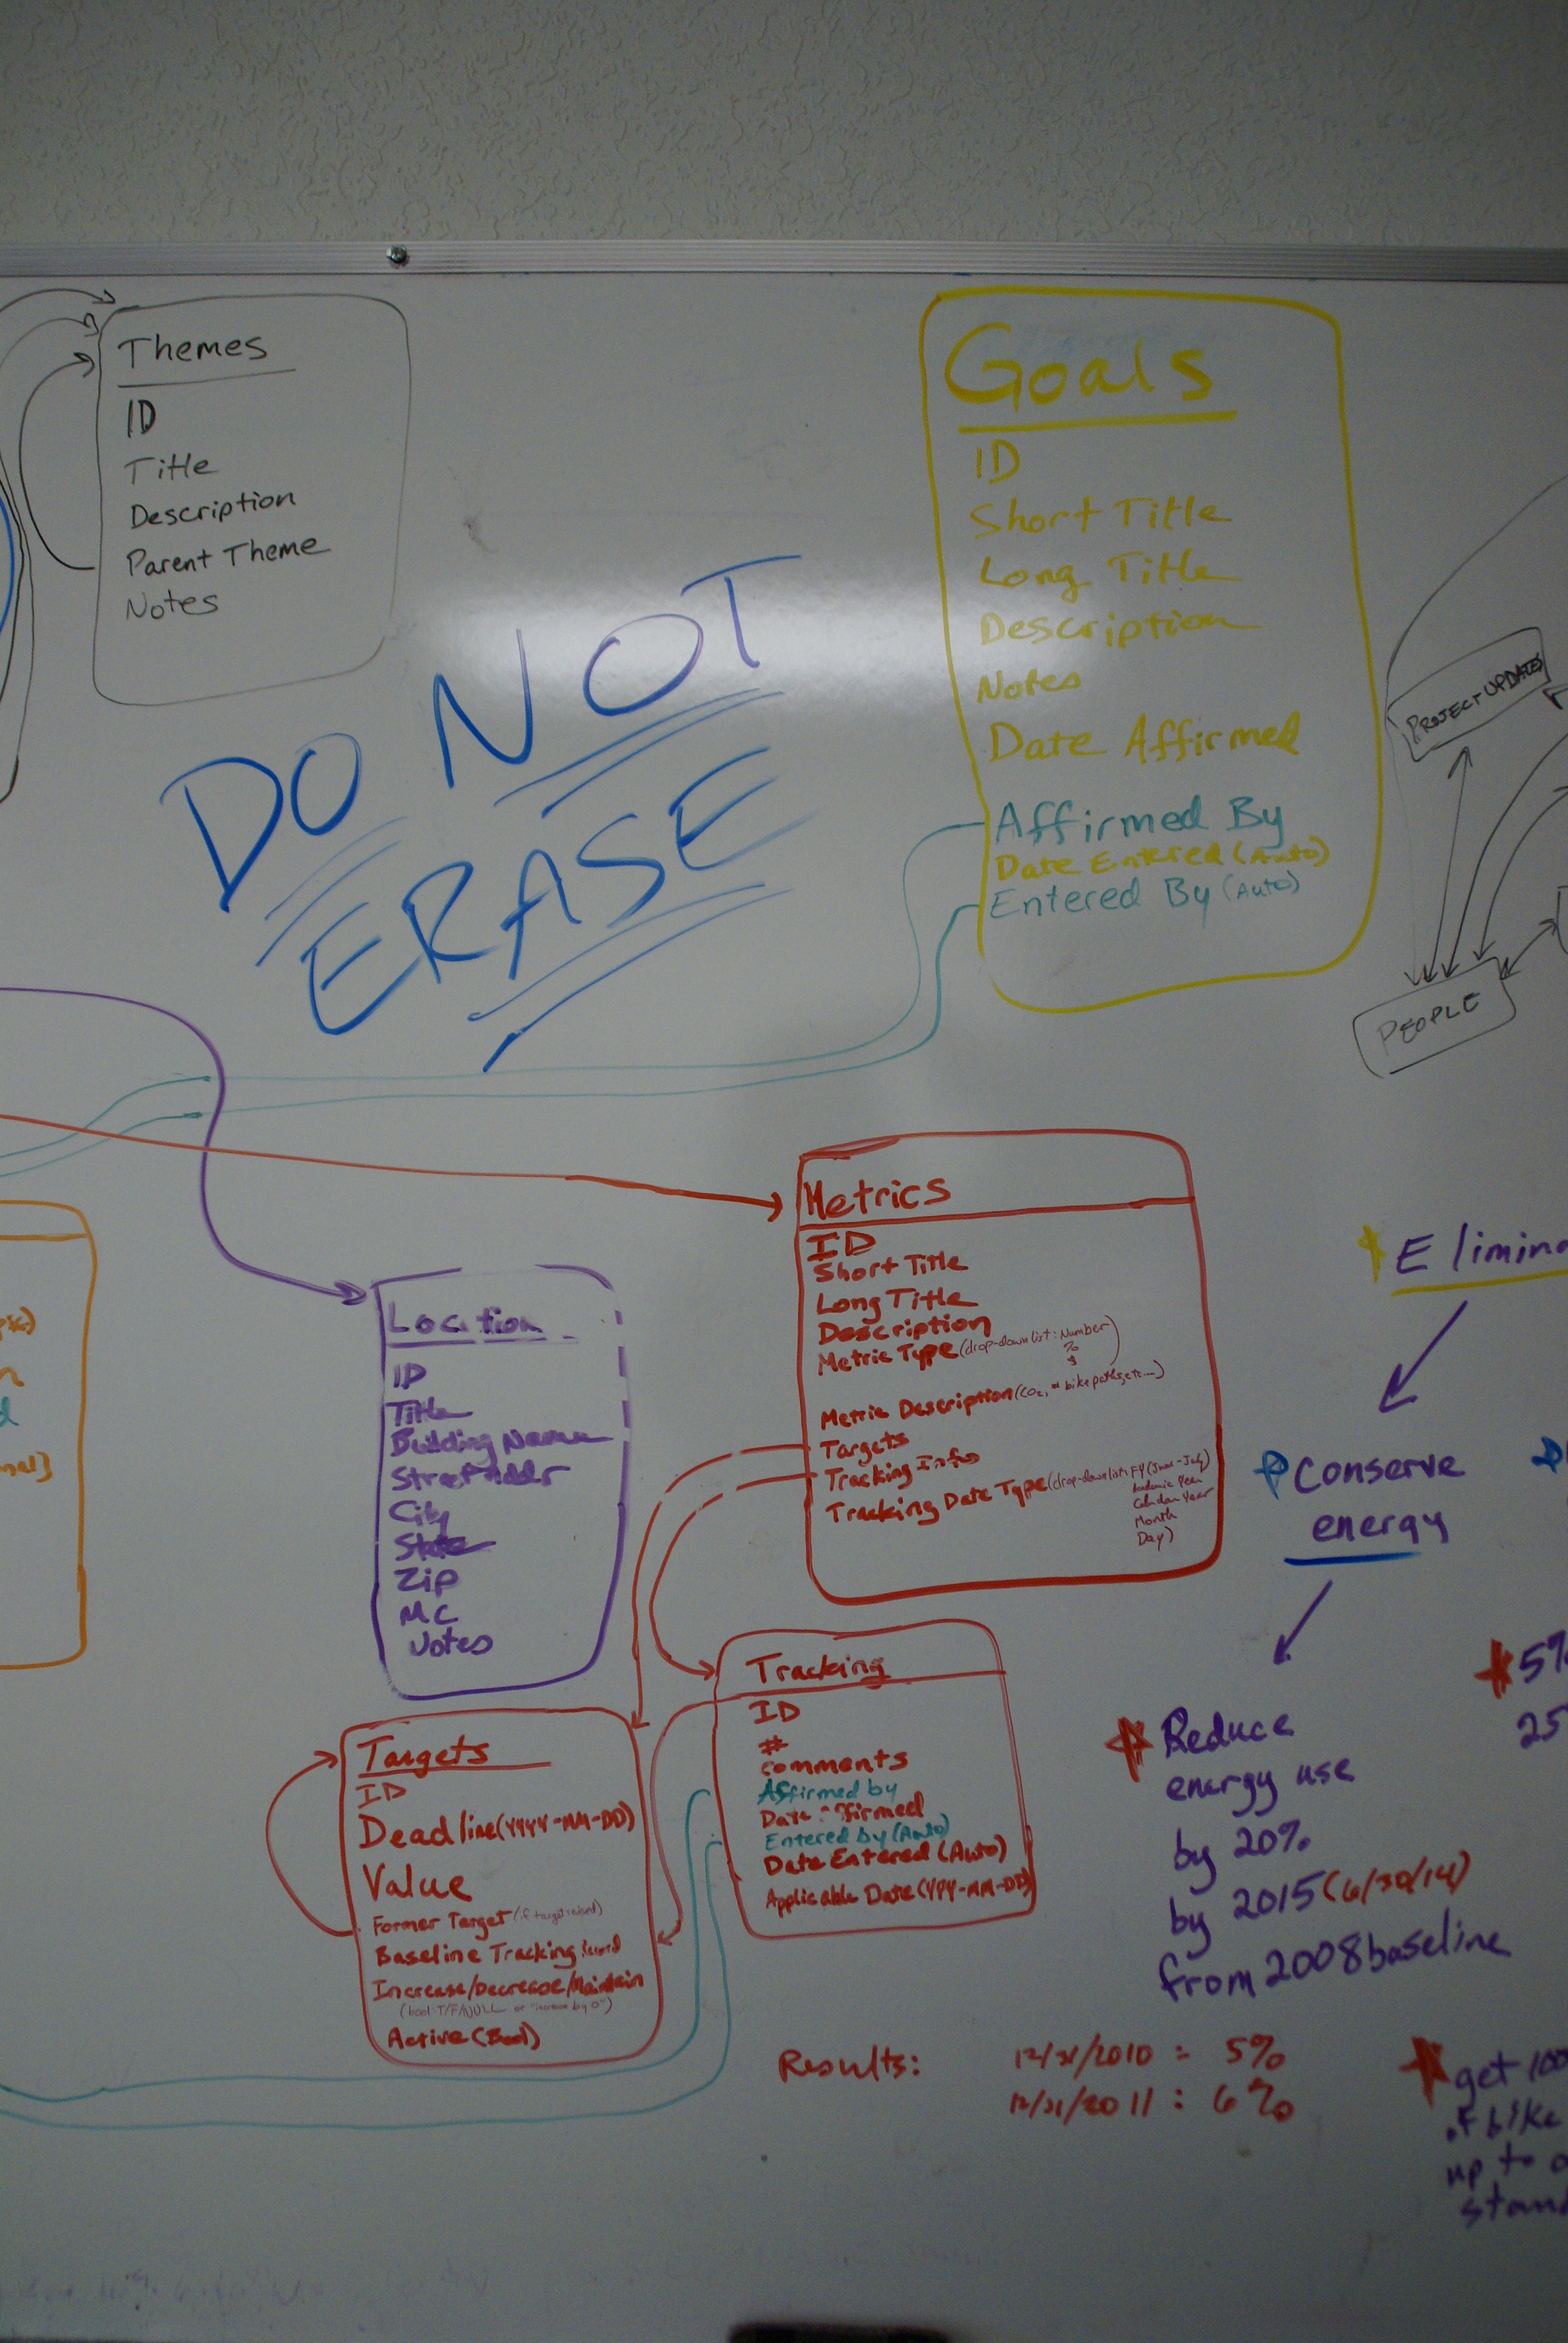 Themes
ID
Title
Description
Parent Theme
Notes
DO NOT
ERASE
Goals
ID
Short Title
Long Title
Description
Notes
Date Affirmed
Affirmed By
Date Entered (Auto)
Entered By (Auto)
PROJECT UPDATES
PEOPLE
Location
ID
Title
Building Name
Street Addr
City
State
Zip
MC
Notes
Metrics
ID
Short Title
Long Title
Description
Metric Type (drop-down list: Number
%
$)
Metric Description (CO2, # bike paths, etc...)
Targets
Tracking Info
Tracking Date Type (drop-down list: FY (June-July)
Academic Year
Calendar Year
Month
Day)
Tracking
ID
#
Comments
Affirmed by
Date Affirmed
Entered by (Auto)
Date Entered (Auto)
Applicable Date (YYY-MM-DD)
Targets
ID
Deadline (YYYY-MM-DD)
Value
Former Target (if target raised)
Baseline Tracking
Increase/Decrease/Maintain
(bool T/F/NULL or "increase by 0")
Active (Bool)
Elimina
Conserve
energy
Reduce
energy use
by 20%
by 2015 (6/30/14)
from 2008 baseline
5%
25
Results: 12/31/2010 : 5%
12/31/2011 : 6%
get 100
of bike
up to
stand